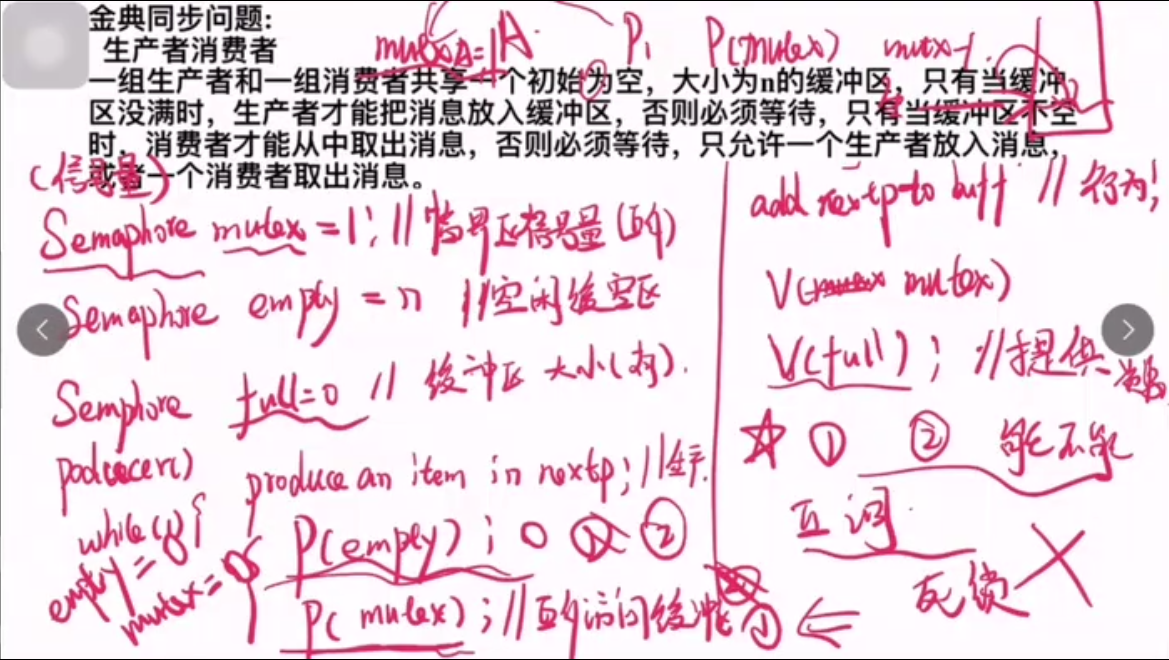 金典同步问题:
生产者消费者
一组生产者和一组消费者共享一个初始为空，大小为n的缓冲区，只有当缓冲
区没满时，生产者才能把消息放入缓冲区，否则必须等待，只有当缓冲区不空
时，消费者才能从中取出消息，否则必须等待，只允许一个生产者放入消息，
或者一个消费者取出消息。
A P1 P(mutex)
(信号量)
Semaphore mutex = 1; // 临界区信号量
Semaphore empty = n // 空闲缓空区
Semphore full=0 // 缓冲区 大小
produce an item in nextp; //
while(1){
P(empty); 0 ②
empty=0
mutex=
P(mutex); // 访问缓冲区 ①
add nextp to buff // 行为;
V(mutex)
V(full); // 提供
☆ ① ② 能不能
互问
死锁